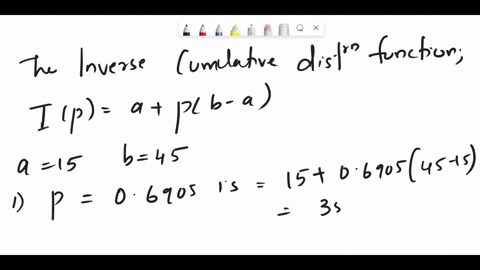 The Inverse Cumulative distrn function;
I(p) = a + p(b-a)
a = 15 b = 45
1) p = 0.6905 is = 15 + 0.6905(45-15)
= 3s